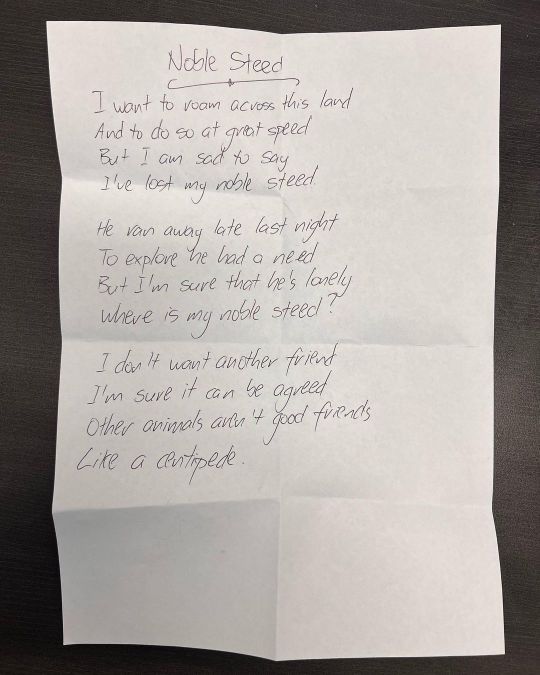 Noble Steed
I want to roam across this land
And to do so at great speed
But I am sad to say
I've lost my noble steed.
He ran away late last night
To explore he had a need
But I'm sure that he's lonely
Where is my noble steed?
I don't want another friend
I'm sure it can be agreed
Other animals aren't good friends
Like a centipede.